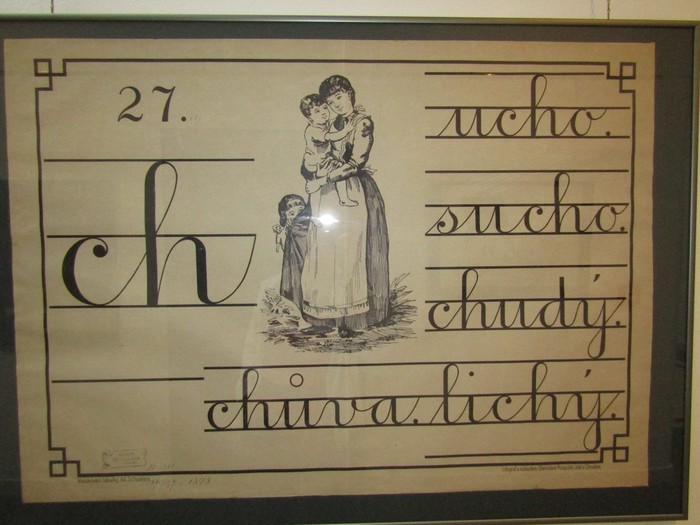 27.
ch
ucho.
sucho.
chudý.
chůva. lichý.